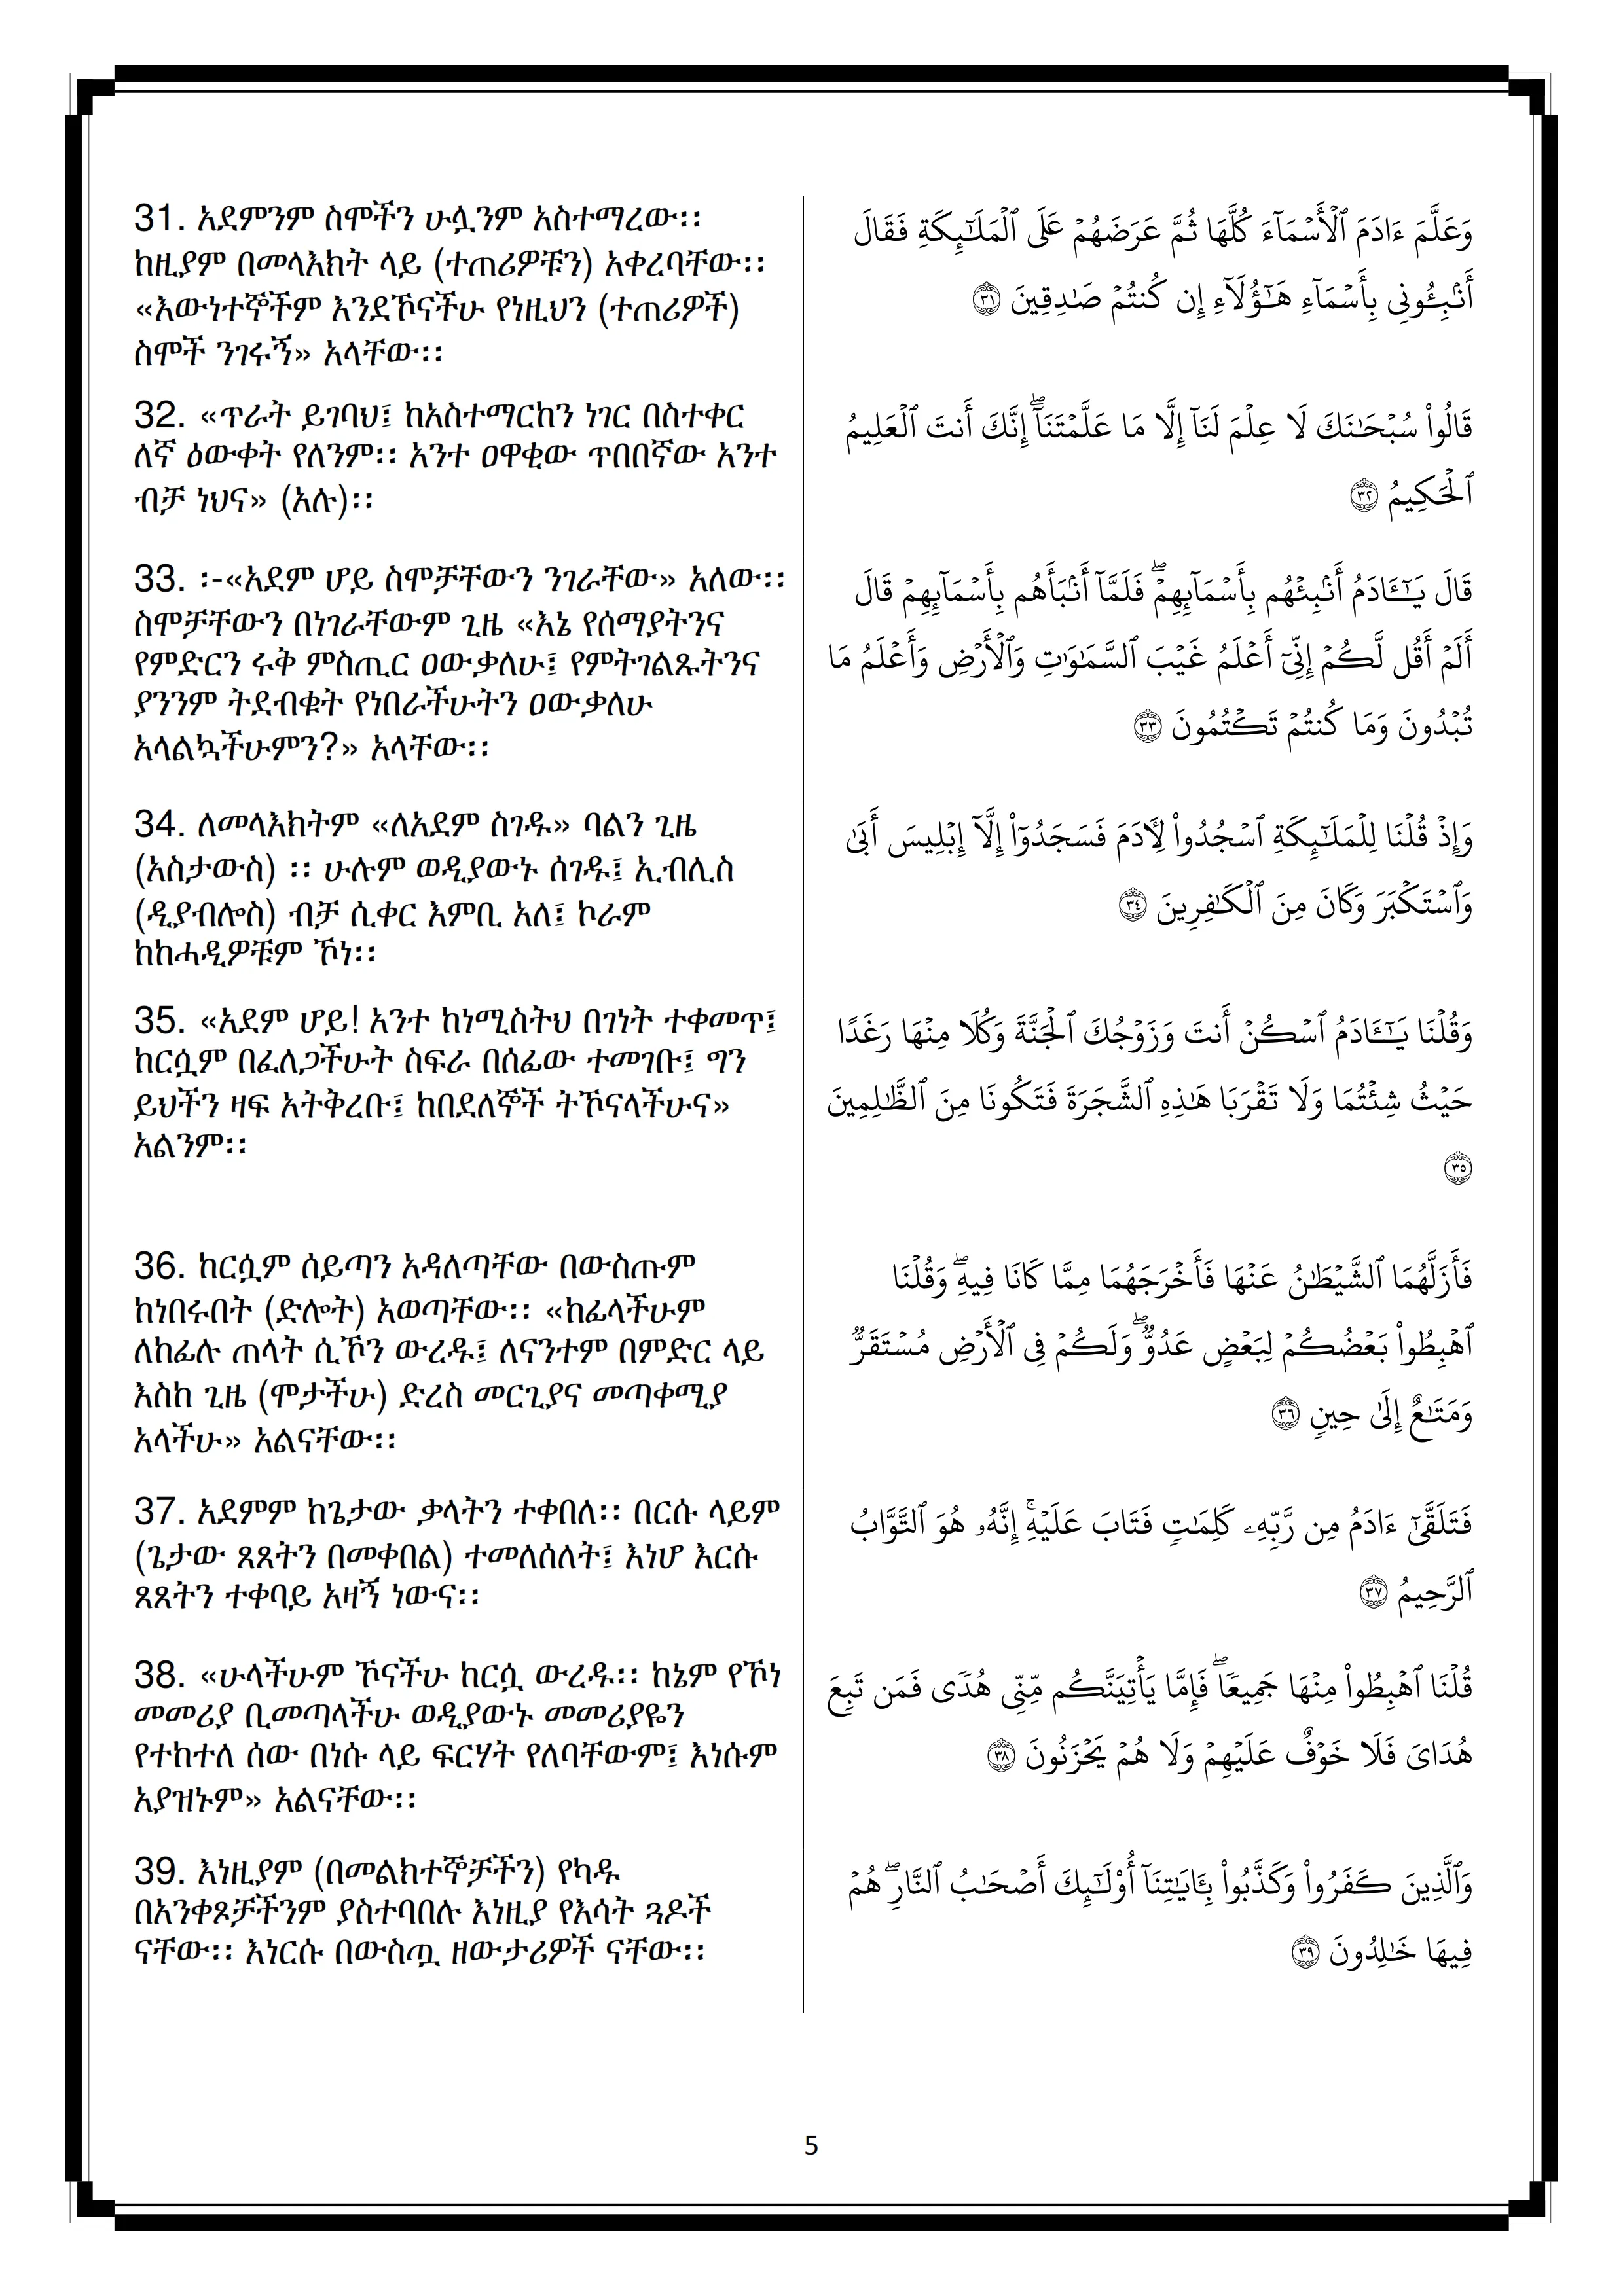 31. አደምንም ስሞችን ሁሏንም አስተማረው፡፡
ከዚያም በመላእክት ላይ (ተጠሪዎቹን) አቀረባቸው፡፡
«እውነተኞችም እንደኾናችሁ የነዚህን (ተጠሪዎች)
ስሞች ንገሩኝ» አላቸው፡፡
وَعَلَّمَ ءَادَمَ ٱلْأَسْمَآءَ كُلَّهَا ثُمَّ عَرَضَهُمْ عَلَى ٱلْمَلَـٰٓئِكَةِ فَقَالَ
أَنۢبِـُٔونِى بِأَسْمَآءِ هَـٰٓؤُلَآءِ إِن كُنتُمْ صَـٰدِقِينَ ٣١
32. «ጥራት ይገባህ፤ ከአስተማርከን ነገር በስተቀር
ለኛ ዕውቀት የለንም፡፡ አንተ ዐዋቂው ጥበበኛው አንተ
ብቻ ነህና» (አሉ)፡፡
قَالُوا۟ سُبْحَـٰنَكَ لَا عِلْمَ لَنَآ إِلَّا مَا عَلَّمْتَنَآ ۖ إِنَّكَ أَنتَ ٱلْعَلِيمُ
ٱلْحَكِيمُ ٣٢
33. ፡-«አደም ሆይ ስሞቻቸውን ንገራቸው» አለው፡፡
ስሞቻቸውን በነገራቸውም ጊዜ «እኔ የሰማያትንና
የምድርን ሩቅ ምስጢር ዐውቃለሁ፤ የምትገልጹትንና
ያንንም ትደብቁት የነበራችሁትን ዐውቃለሁ
አላልኳችሁምን?» አላቸው፡፡
قَالَ يَـٰٓـَٔادَمُ أَنۢبِئْهُم بِأَسْمَآئِهِمْ ۖ فَلَمَّآ أَنۢبَأَهُم بِأَسْمَآئِهِمْ قَالَ
أَلَمْ أَقُل لَّكُمْ إِنِّىٓ أَعْلَمُ غَيْبَ ٱلسَّمَـٰوَٰتِ وَٱلْأَرْضِ وَأَعْلَمُ مَا
تُبْدُونَ وَمَا كُنتُمْ تَكْتُمُونَ ٣٣
34. ለመላእክትም «ለአደም ስገዱ» ባልን ጊዜ
(አስታውስ) ፡፡ ሁሉም ወዲያውኑ ሰገዱ፤ ኢብሊስ
(ዲያብሎስ) ብቻ ሲቀር እምቢ አለ፤ ኮራም
ከከሓዲዎቹም ኾነ፡፡
وَإِذْ قُلْنَا لِلْمَلَـٰٓئِكَةِ ٱسْجُدُوا۟ لِـَٔادَمَ فَسَجَدُوٓا۟ إِلَّآ إِبْلِيسَ أَبَىٰ
وَٱسْتَكْبَرَ وَكَانَ مِنَ ٱلْكَـٰفِرِينَ ٣٤
35. «አደም ሆይ! አንተ ከነሚስትህ በገነት ተቀመጥ፤
ከርሷም በፈለጋችሁት ስፍራ በሰፊው ተመገቡ፤ ግን
ይህችን ዛፍ አትቅረቡ፤ ከበደለኞች ትኾናላችሁና»
አልንም፡፡
وَقُلْنَا يَـٰٓـَٔادَمُ ٱسْكُنْ أَنتَ وَزَوْجُكَ ٱلْجَنَّةَ وَكُلَا مِنْهَا رَغَدًا
حَيْثُ شِئْتُمَا وَلَا تَقْرَبَا هَـٰذِهِ ٱلشَّجَرَةَ فَتَكُونَا مِنَ ٱلظَّـٰلِمِينَ
٣٥
36. ከርሷም ሰይጣን አዳለጣቸው በውስጡም
ከነበሩበት (ድሎት) አወጣቸው፡፡ «ከፊላችሁም
ለከፊሉ ጠላት ሲኾን ውረዱ፤ ለናንተም በምድር ላይ
እስከ ጊዜ (ሞታችሁ) ድረስ መርጊያና መጣቀሚያ
አላችሁ» አልናቸው፡፡
فَأَزَلَّهُمَا ٱلشَّيْطَـٰنُ عَنْهَا فَأَخْرَجَهُمَا مِمَّا كَانَا فِيهِ ۖ وَقُلْنَا
ٱهْبِطُوا۟ بَعْضُكُمْ لِبَعْضٍ عَدُوٌّ ۖ وَلَكُمْ فِى ٱلْأَرْضِ مُسْتَقَرٌّ
وَمَتَـٰعٌ إِلَىٰ حِينٍ ٣٦
37. አደምም ከጌታው ቃላትን ተቀበለ፡፡ በርሱ ላይም
(ጌታው ጸጸትን በመቀበል) ተመለሰለት፤ እነሆ እርሱ
ጸጸትን ተቀባይ አዛኝ ነውና፡፡
فَتَلَقَّىٰٓ ءَادَمُ مِن رَّبِّهِۦ كَلِمَـٰتٍ فَتَابَ عَلَيْهِ ۚ إِنَّهُۥ هُوَ ٱلتَّوَّابُ
ٱلرَّحِيمُ ٣٧
38. «ሁላችሁም ኾናችሁ ከርሷ ውረዱ፡፡ ከኔም የኾነ
መመሪያ ቢመጣላችሁ ወዲያውኑ መመሪያዬን
የተከተለ ሰው በነሱ ላይ ፍርሃት የለባቸውም፤ እነሱም
አያዝኑም» አልናቸው፡፡
قُلْنَا ٱهْبِطُوا۟ مِنْهَا جَمِيعًا ۖ فَإِمَّا يَأْتِيَنَّكُم مِّنِّى هُدًى فَمَن تَبِعَ
هُدَاىَ فَلَا خَوْفٌ عَلَيْهِمْ وَلَا هُمْ يَحْزَنُونَ ٣٨
39. እነዚያም (በመልክተኞቻችን) የካዱ
በአንቀጾቻችንም ያስተባበሉ እነዚያ የእሳት ጓዶች
ናቸው፡፡ እነርሱ በውስጧ ዘውታሪዎች ናቸው፡፡
وَٱلَّذِينَ كَفَرُوا۟ وَكَذَّبُوا۟ بِـَٔايَـٰتِنَآ أُو۟لَـٰٓئِكَ أَصْحَـٰبُ ٱلنَّارِ ۖ هُمْ
فِيهَا خَـٰلِدُونَ ٣٩
5